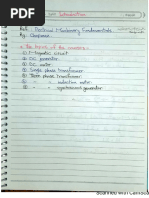 Introduction
Ref. : Electrical Machinery Fundamentals
By : Chapman.
* The topics of the course :-
1) Magnetic circuit
2) DC generator
3) DC motor
4) Single phase transformer
5) Three phase transformer
6) " " induction motor
7) " " synchronous generator
Scanned with CamSca